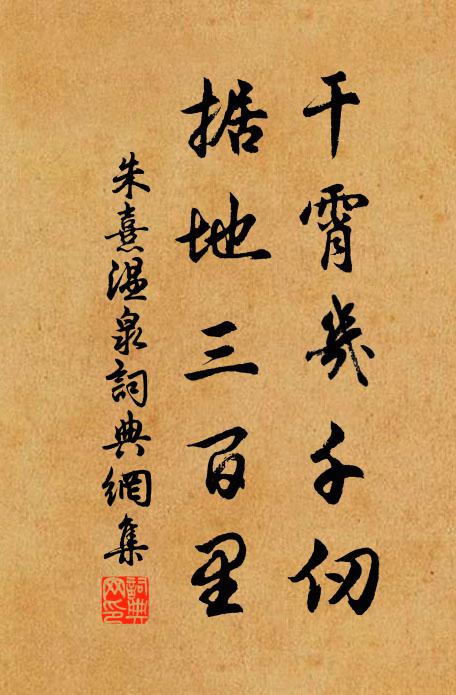 干霄幾千仞
据地三百里
朱熹溫泉詞典網集
詞典網印